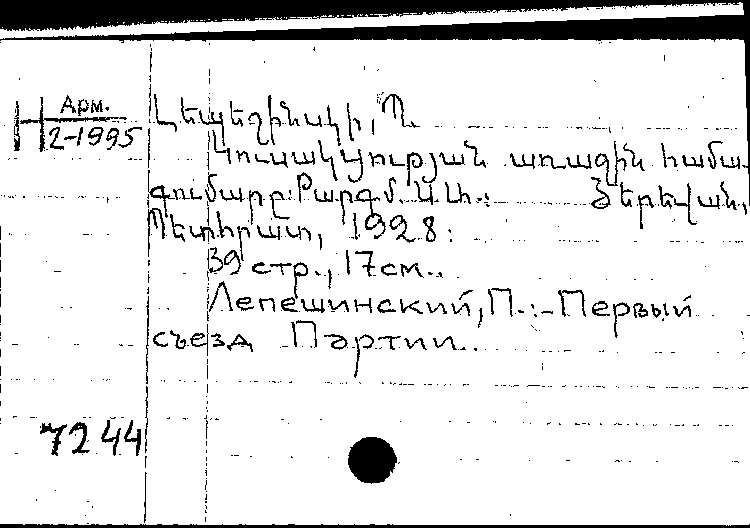 H Арм.
2-1995
Լեպեշինսկի, Պ.
Կուսակցության առաջին համա-
գումարը: Բարգմ. Ա. Մ.: Յերեվան,
Պետհրատ, 1928:
39 стр., 17см..
Лепешинский, П.:-Первый
съезд Партии.
7244